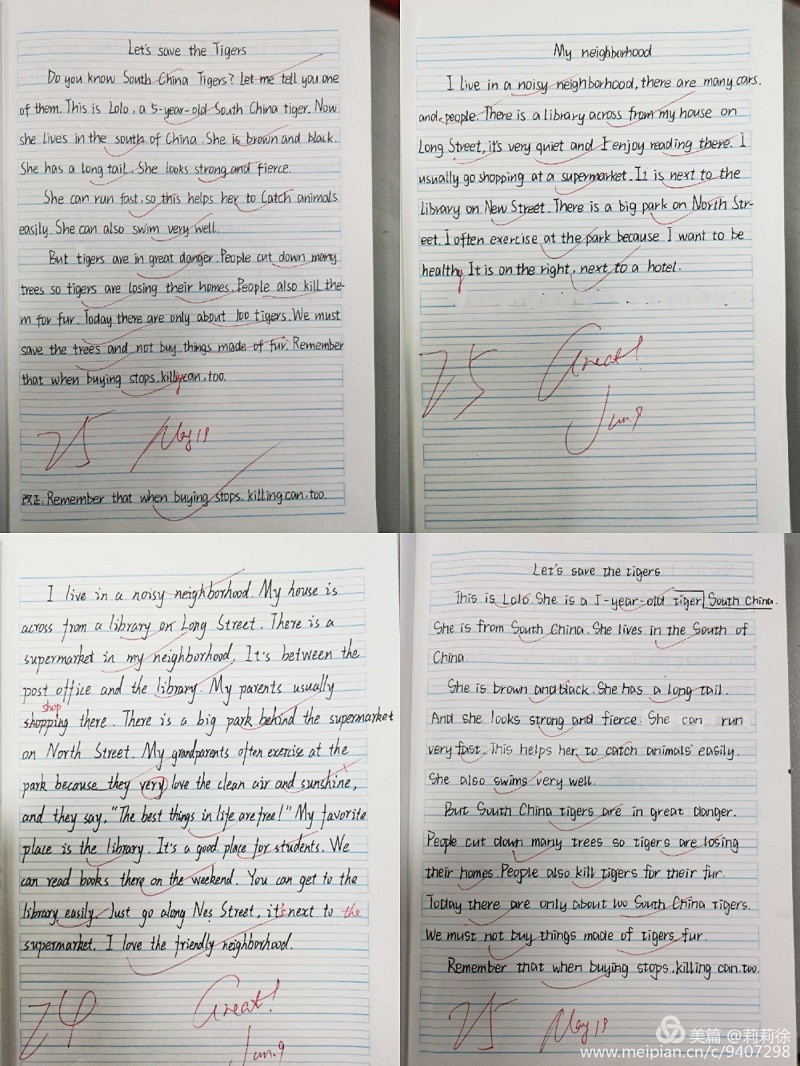 Let's save the Tigers
Do you know South China Tigers? Let me tell you one
of them. This is Lolo, a 5-year-old South China tiger. Now
she lives in the south of China. She is brown and black.
She has a long tail. She looks strong and fierce.
She can run fast, so this helps her to Catch animals
easily. She can also swim very well.
But tigers are in great danger. People cut down many
trees so tigers are losing their homes. People also kill the-
m for fur. Today there are only about 100 tigers. We must
save the trees and not buy things made of fur. Remember
that when buying stops, can, too.
25 May 19
改正: Remember that when buying stops, killing can, too.
My neighborhood
I live in a noisy neighborhood, there are many cars.
and people. There is a library across from my house on
Long Street, it's very quiet and I enjoy reading there. I
usually go shopping at a supermarket. It is next to the
library on New Street. There is a big park on North Str-
eet. I often exercise at the park because I want to be
healthy. It is on the right, next to a hotel.
25 Great!
Jun.9
I live in a noisy neighborhood. My house is
across from a library on Long Street. There is a
supermarket in my neighborhood. It's between the
post office and the library. My parents usually
shop
shopping there. There is a big park behind the supermarket
on North Street. My grandparents often exercise at the
park because they very love the clean air and sunshine,
and they say, "The best things in life are free!" My favorite
place is the library. It's a good place for students. We
can read books there on the weekend. You can get to the
library easily. Just go along Nes Street, it's next to the
supermarket. I love the friendly neighborhood.
24 Great!
Jun.9
Let's save the tigers
This is Lolo. She is a 5-year-old tiger South China.
She is from South China. She lives in the South of
China.
She is brown and black. She has a long tail.
And she looks strong and fierce. She can run
very fast. This helps her to catch animals easily.
She also swims very well.
But South China tigers are in great danger.
People cut down many trees so tigers are losing
their homes. People also kill tigers for their fur.
Today there are only about 100 South China Tigers.
We must not buy things made of tigers fur.
Remember that when buying stops, killing can, too.
25 May 19
美篇 @莉莉徐
www.meipian.cn/c/9407298